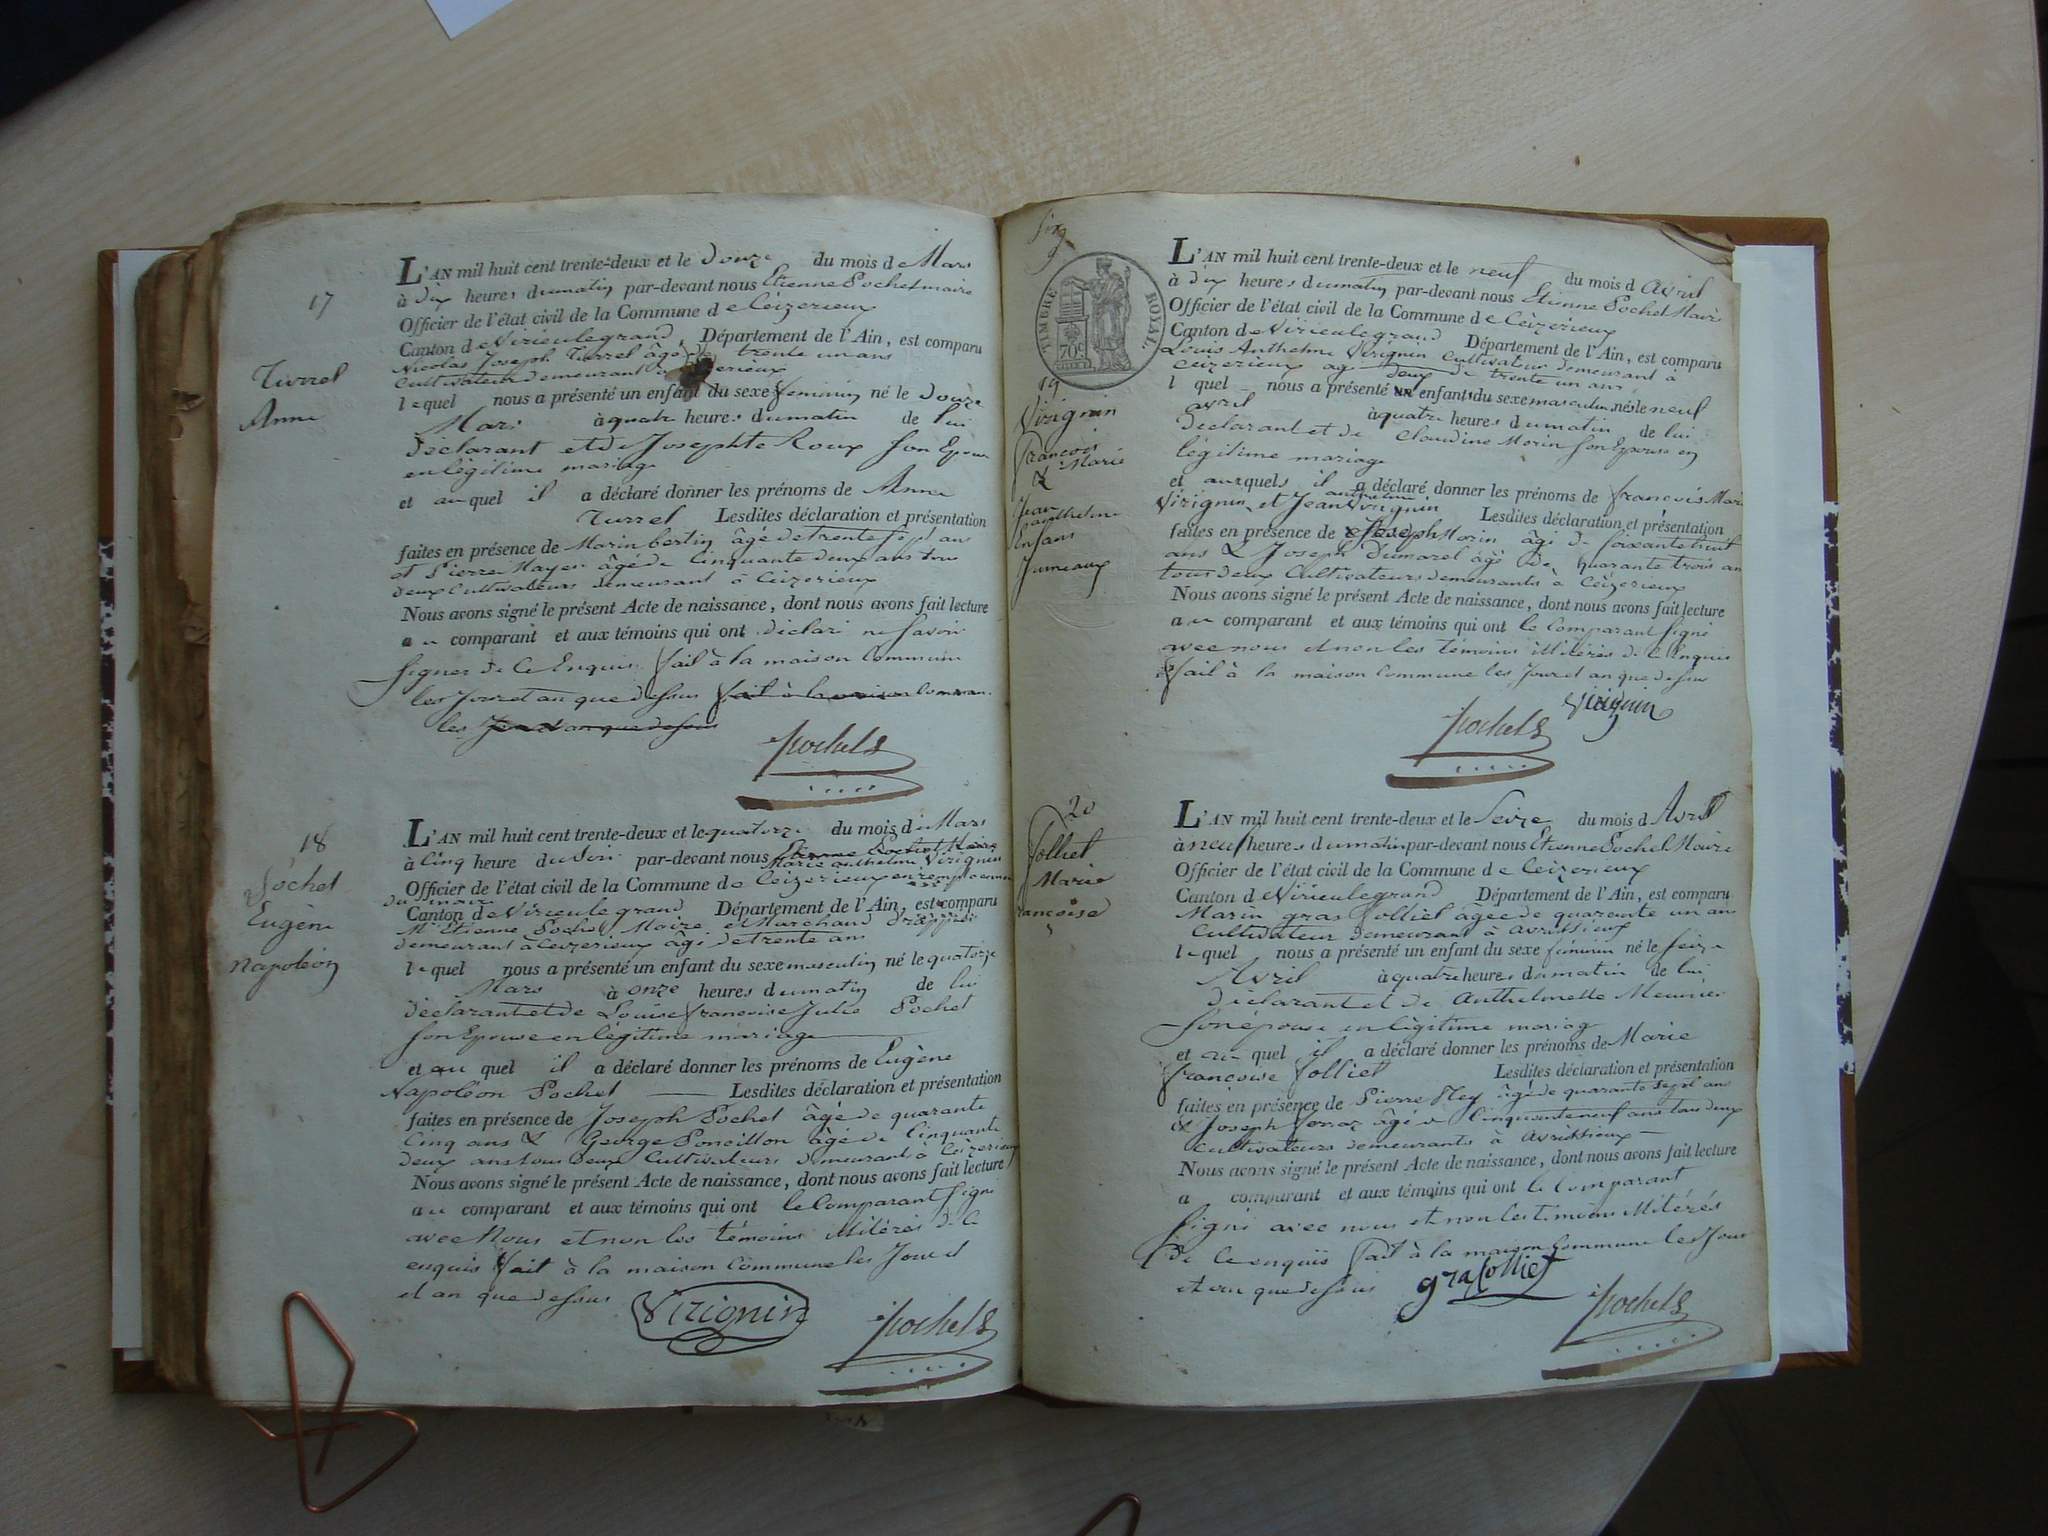 17
Turrel
Anne
L'AN mil huit cent trente-deux et le douze du mois de Mars
à dix heures du matin par-devant nous Etienne Pochet maire
Officier de l'état civil de la Commune de Ceizerieux
Canton de Virieulegrand Département de l'Ain, est comparu
Nicolas Joseph Turrel âgé de trente un ans
Cultivateur demeurant
lequel nous a présenté un enfant du sexe feminin né le douze
Mars à quatre heures du matin de lui
déclarant et de Josephte Roux son Epouse
en légitime mariage
et auquel il a déclaré donner les prénoms de Anne
Turrel Lesdites déclaration et présentation
faites en présence de Marin bertin âgé de trente ans
et Pierre Mayer âgé de Cinquante deux ans tous
deux Cultivateurs demeurant à Ceizerieux
Nous avons signé le présent Acte de naissance, dont nous avons fait lecture
au comparant et aux témoins qui ont déclaré ne savoir
signer de ce Enquis fait à la maison Commune
les Jour et an que dessus fait à la maison Commune
les Jour et an que dessus
Pochet
18
Pochet
Eugène
Napoléon
L'AN mil huit cent trente-deux et le quatorze du mois de Mars
à Cinq heure du soir par-devant nous Etienne Pochet Maire
Marie anthelme Virignin
Officier de l'état civil de la Commune de Ceizerieux en remplacement
du maire
Canton de Virieule grand Département de l'Ain, est comparu
Mr Etienne Pochet Maire et Marchand Drappier
demeurant à Ceizerieux âgé de trente ans
lequel nous a présenté un enfant du sexe masculin né le quatorze
Mars à onze heures du matin de lui
déclarant et de Louise françoise Julie Pochet
son Epouse en légitime mariage
et au quel il a déclaré donner les prénoms de Eugène
Napoléon Pochet Lesdites déclaration et présentation
faites en présence de Joseph Pochet âgé de quarante
Cinq ans & George Poncillon âgé de Cinquante
deux ans tous deux Cultivateurs demeurant à Ceizerieux
Nous avons signé le présent Acte de naissance, dont nous avons fait lecture
au comparant et aux témoins qui ont le Comparant signé
avec Nous et non les témoins illitérés de ce
enquis fait à la maison Commune les Jour
et an que dessus
Virignin
Pochet
Six
TIMBRE ROYAL
70c
19
Virignin
François
Marie
&
Jean
anthelme
Enfans
Jumeaux
L'AN mil huit cent trente-deux et le neuf du mois d Avril
à dix heures du matin par-devant nous Etienne Pochet Maire
Officier de l'état civil de la Commune de Ceizerieux
Canton de Virieulegrand Département de l'Ain, est comparu
Louis Anthelme Virignin Cultivateur demeurant à
Ceizerieux agé de trente un ans
deux
lequel nous a présenté un enfants du sexe masculin nés le neuf
avril à quatre heures du matin de lui
déclarant et de Claudine Morin son Epouse en
légitime mariage
et auxquels il a déclaré donner les prénoms de françois Marie
anthelme
Virignin et Jean Virignin Lesdites déclaration et présentation
faites en présence de Joseph Morin âgé de soixante huit
ans & Joseph Dumarel âgé de quarante trois ans
tous deux Cultivateurs demeurants à Ceizerieux
Nous avons signé le présent Acte de naissance, dont nous avons fait lecture
au comparant et aux témoins qui ont le Comparant signé
avec nous et non les témoins illitérés de ce Enquis
fait à la maison Commune les Jour et an que dessus
Virignin
Pochet
20
Jolliet
Marie
françoise
L'AN mil huit cent trente-deux et le Seize du mois d Avril
à neuf heures du matin par-devant nous Etienne Pochet Maire
Officier de l'état civil de la Commune de Ceizerieux
Canton de Virieulegrand Département de l'Ain, est comparu
Marin gras Jolliet âgée de quarante un ans
Cultivateur demeurant à avrissieux
lequel nous a présenté un enfant du sexe féminin né le seize
Avril à quatre heures du matin de lui
déclarant et de Anthelmette Meunier
son épouse en légitime mariage
et au quel il a déclaré donner les prénoms de Marie
françoise Jolliet Lesdites déclaration et présentation
faites en présence de Pierre Rey âgé de quarante sept ans
& Joseph âgé de Cinquanteneuf ans tous deux
Cultivateurs demeurants à avrissieux
Nous avons signé le présent Acte de naissance, dont nous avons fait lecture
a comparant et aux témoins qui ont le Comparant
signé avec nous et non les témoins illitérés
de ce enquis fait à la maison Commune les Jour
et an que dessus
gras Jolliet
Pochet